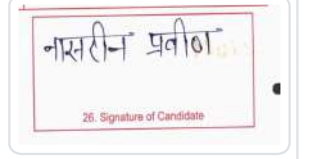 नासरीन प्रवीण
26. Signature of Candidate